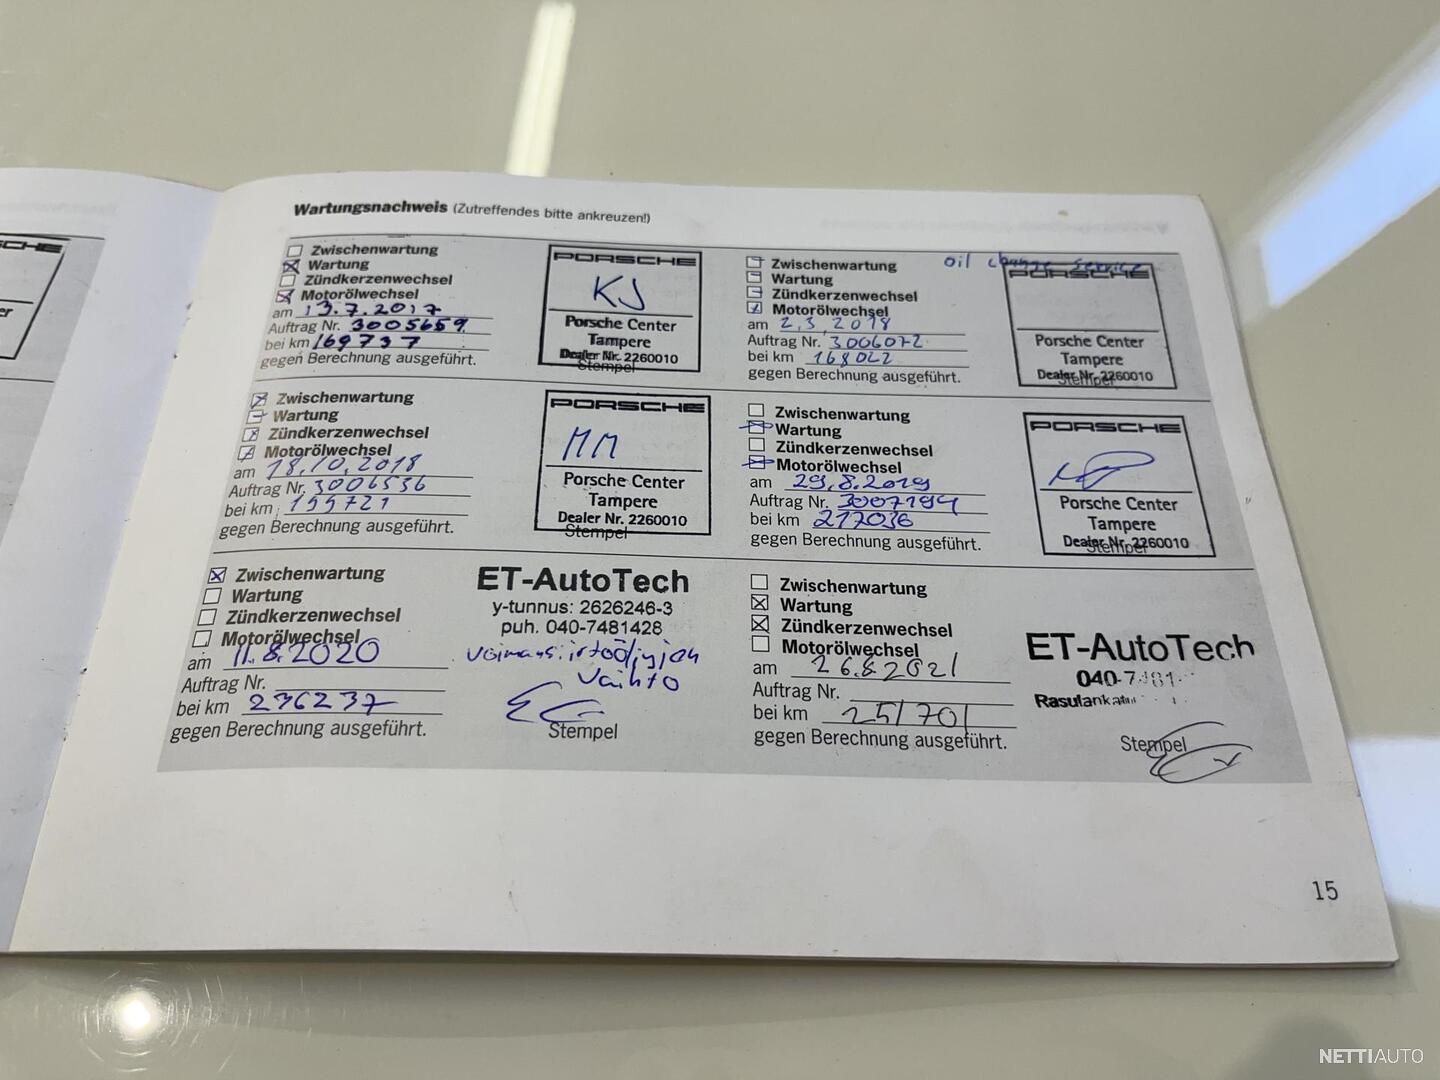 Wartungsnachweis (Zutreffendes bitte ankreuzen!)
Zwischenwartung
Wartung
Zündkerzenwechsel
Motorölwechsel
am 13.7.2017
Auftrag Nr. 3005659
bei km 169737
gegen Berechnung ausgeführt.
PORSCHE
KJ
Porsche Center
Tampere
Dealer Nr. 2260010
Stempel
oil change service
Zwischenwartung
Wartung
Zündkerzenwechsel
Motorölwechsel
am 2.3.2018
Auftrag Nr. 3006072
bei km 168022
gegen Berechnung ausgeführt.
PORSCHE
Porsche Center
Tampere
Dealer Nr. 2260010
Stempel
Zwischenwartung
Wartung
Zündkerzenwechsel
Motorölwechsel
am 18.10.2018
Auftrag Nr. 3006536
bei km 199721
gegen Berechnung ausgeführt.
PORSCHE
MM
Porsche Center
Tampere
Dealer Nr. 2260010
Stempel
Zwischenwartung
Wartung
Zündkerzenwechsel
Motorölwechsel
am 29.8.2019
Auftrag Nr. 3007194
bei km 217036
gegen Berechnung ausgeführt.
PORSCHE
Porsche Center
Tampere
Dealer Nr. 2260010
Stempel
Zwischenwartung
Wartung
Zündkerzenwechsel
Motorölwechsel
am 11.8.2020
Auftrag Nr.
bei km 236237
gegen Berechnung ausgeführt.
ET-AutoTech
y-tunnus: 2626246-3
puh. 040-7481428
voimansiirtoöljyjen
vaihto
Stempel
Zwischenwartung
Wartung
Zündkerzenwechsel
Motorölwechsel
am 26.8.2021
Auftrag Nr.
bei km 251701
gegen Berechnung ausgeführt.
ET-AutoTech
040-7481
Stempel
15
NETTIAUTO